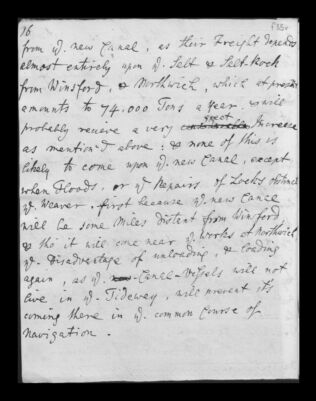 16
from ye. new Canal, as their Freight depends
almost entirely upon ye. Salt & Salt-Rock
from Winsford, & Northwich, which at present
amounts to 74.000 Tons a year. & will
probably receive a very great Increase
as mention'd above: & none of this is
likely to come upon ye. new Canal, except
when Floods, or ye. Repairs of Locks obstruct
ye. Weaver. first because ye. new Canal
will be some Miles distant from Winsford
& tho' it will come near ye. works at Northwich
ye. Disadvantage of unloading, & loading
again, as ye. Canal-Vessels will not
live in ye. Tideway, will prevent it's
coming there in ye. common Course of
Navigation.